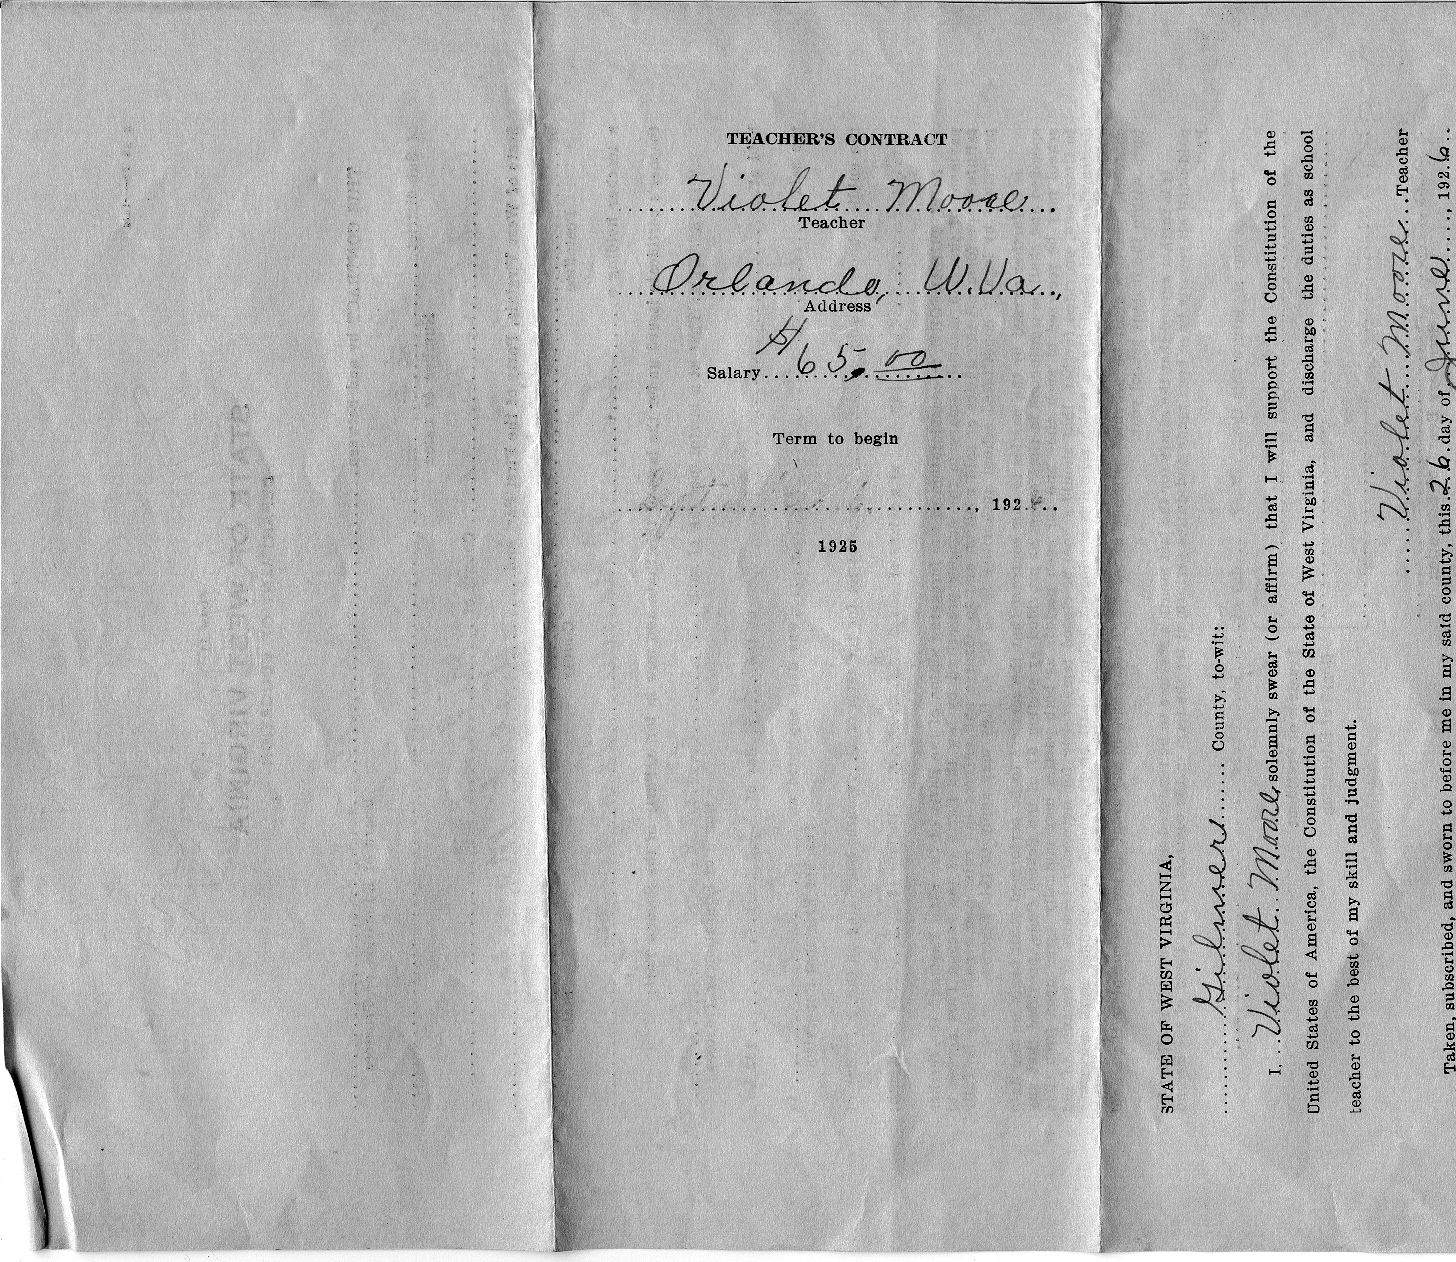 TEACHER'S CONTRACT
Violet Moore
Teacher
Orlando, W.Va.,
Address
Salary $65.00
Term to begin
, 192
1925
STATE OF WEST VIRGINIA,
Gilmer County, to-wit:
I, Violet Moore, solemnly swear (or affirm) that I will support the Constitution of the
United States of America, the Constitution of the State of West Virginia, and discharge the duties as school
teacher to the best of my skill and judgment.
Violet Moore Teacher
Taken, subscribed, and sworn to before me in my said county, this 26 day of June, 1926